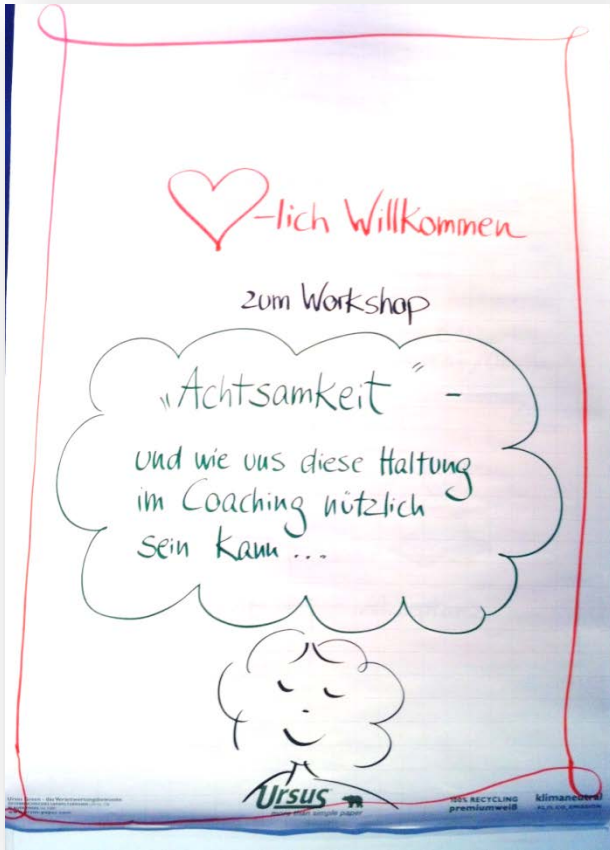 -lich Willkommen
zum Workshop
„Achtsamkeit" -
und wie uns diese Haltung
im Coaching nützlich
sein kann ...
Ursus
more than simple paper
100% RECYCLING
premiumweiß
klimaneutral